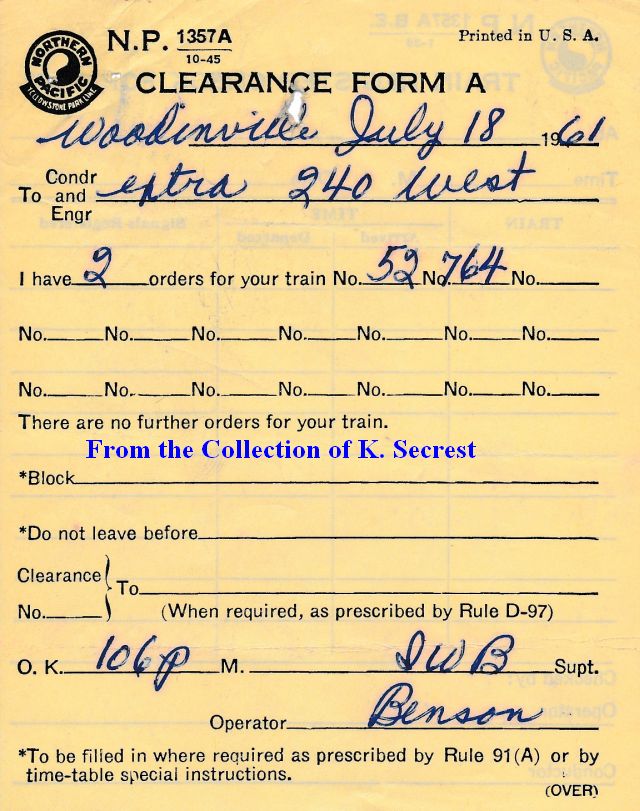 NORTHERN PACIFIC
YELLOWSTONE PARK LINE
N.P. 1357A
10-45
Printed in U. S. A.
CLEARANCE FORM A
Woodinville July 18 1961
To Condr and Engr extra 240 West
I have 2 orders for your train No. 52 No. 764 No.
No. No. No. No. No. No. No.
No. No. No. No. No. No. No.
There are no further orders for your train.
From the Collection of K. Secrest
*Block
*Do not leave before
Clearance No. } To
(When required, as prescribed by Rule D-97)
O. K. 106p M. IWB Supt.
Operator Benson
*To be filled in where required as prescribed by Rule 91(A) or by
time-table special instructions.
(OVER)